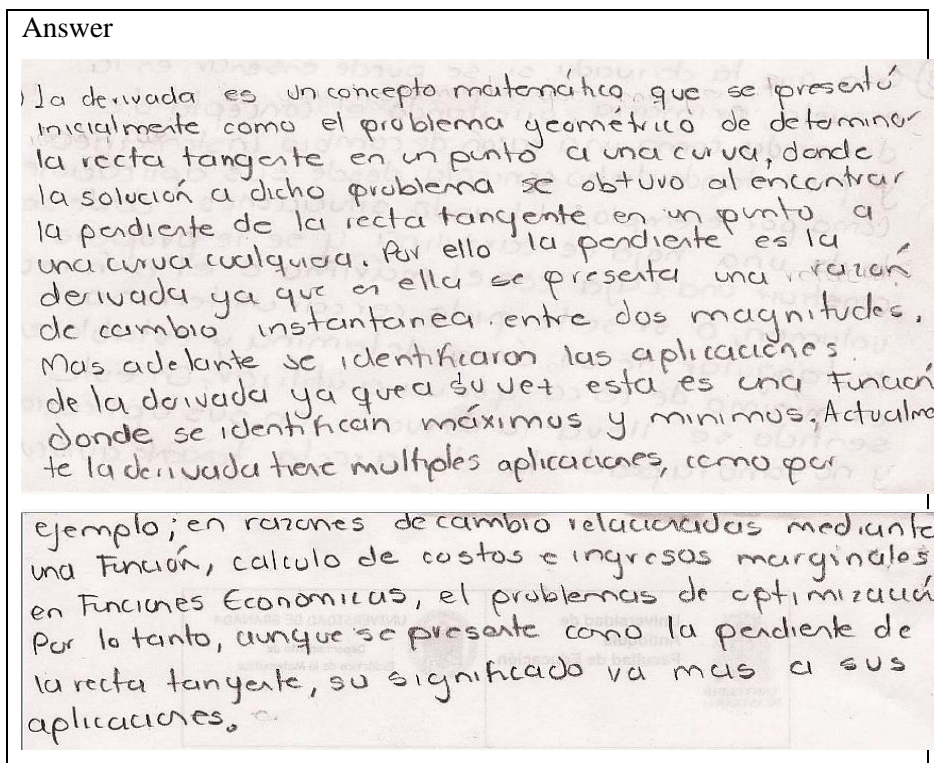 Answer
La derivada es un concepto matemático que se presentó
inicialmente como el problema geométrico de determinar
la recta tangente en un punto a una curva, donde
la solución a dicho problema se obtuvo al encontrar
la pendiente de la recta tangente en un punto a
una curva cualquida. Por ello la pendiente es la
derivada ya que en ella se presenta una razón
de cambio instantanea entre dos magnitudes.
Mas adelante se identificaron las aplicaciones
de la derivada ya que a su vez esta es una Función
donde se identifican máximos y minimos, Actualme
te la derivada tiene multiples aplicaciones, como por
ejemplo; en razones de cambio relacionadas mediante
una Función, calculo de costos e ingresos marginales
en Funciones Economicas, el problemas de optimización
Por lo tanto, aunque se presente como la pendiente de
la recta tangente, su significado va mas a sus
aplicaciones.